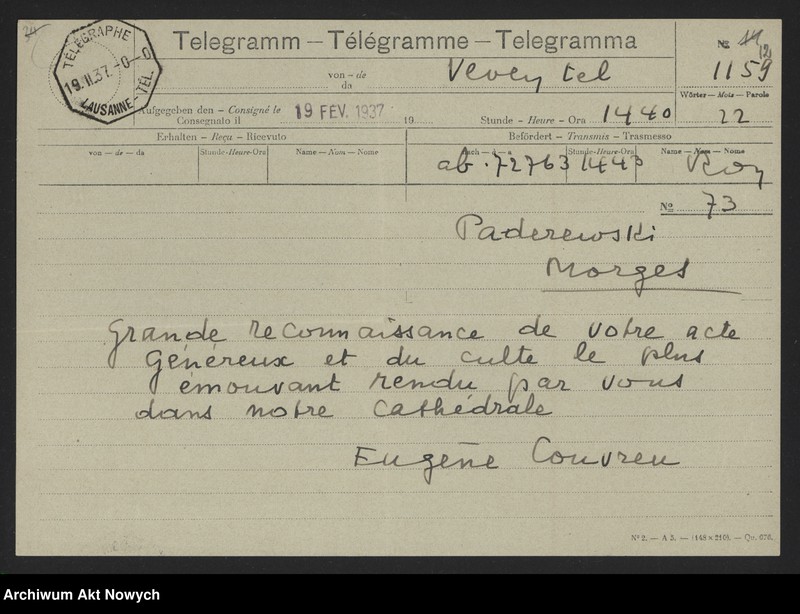 TÉLÉGRAPHE
19.II.37.-0--0
LAUSANNE-TÉL.
Telegramm — Télégramme — Telegramma
von - de
da
Vevey tel
№
1159
Wörter — Mots — Parole
22
Aufgegeben den - Consigné le
Consegnato il
19 FÉV. 1937
19
Stunde - Heure - Ora
1440
Erhalten — Reçu - Ricevuto
Befördert — Transmis — Trasmesso
von — de — da
Stunde-Heure-Ora
Name — Nom — Nome
nach — à — a
Stunde-Heure-Ora
Name — Nom — Nome
ab . 72763 1443
№ 73
Paderewski
Morges
Grande reconnaissance de votre acte
généreux et du culte le plus
émouvant rendu par vous
dans notre cathédrale
Eugène Couvreu
N° 2. — A 5. — (148 × 210). — Qu. 070.
Archiwum Akt Nowych